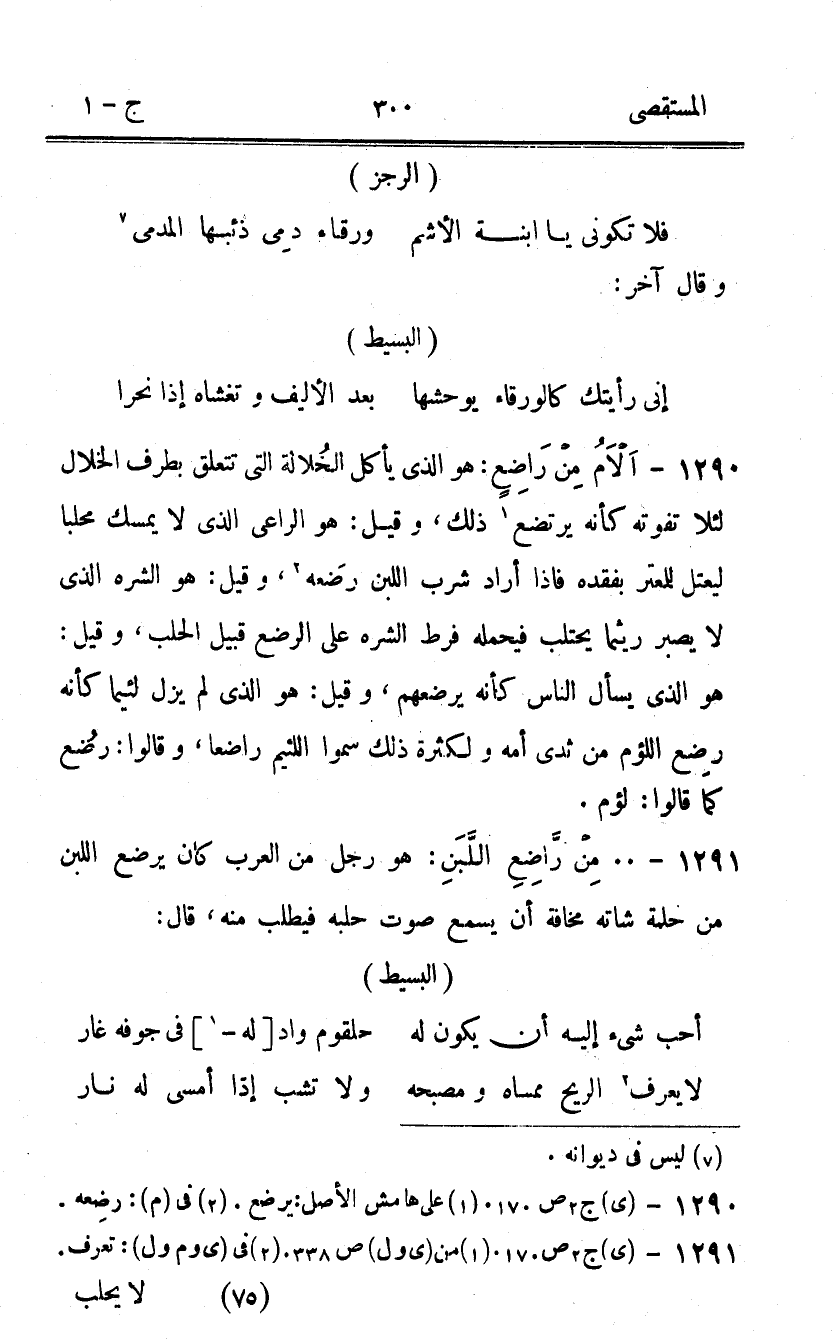 المستقصى ٣٠٠ ج - ١
( الرجز )
فلا تكونى يا ابنة الأشم ورقاء دمِى ذئبها المدمى٧
و قال آخر:
( البسيط )
إنى رأيتك كالورقاء يوحشها بعد الأليف و تغشاه إذا نحرا
١٢٩٠ - اَلْاَمُ مِنْ رَاضِعٍ: هو الذى يأكل الخُلالة التى تتعلق بطرف الخلال
لئلا تفوته كأنه يرتضع١ ذلك، و قيل: هو الراعى الذى لا يمسك محلبا
ليعتل للمعتر بفقده فاذا أراد شرب اللبن رضَعه٢، و قيل: هو الشره الذى
لا يصبر ريثما يحتلب فيحمله فرط الشره على الرضع قبيل الحلب، و قيل:
هو الذى يسأل الناس كأنه يرضعهم، و قيل: هو الذى لم يزل لئيما كأنه
رضِع اللؤم من ثدى أمه و لكثرة ذلك سموا اللئيم راضعا، و قالوا: رضُع
كما قالوا: لؤم .
١٢٩١ - .. مِنْ رَّاضِعِ اللَّبَنِ: هو رجل من العرب كان يرضع اللبن
من حلمة شاته مخافة أن يسمع صوت حلبه فيطلب منه، قال:
( البسيط )
أحب شىء إليه أن يكون له حلقوم واد [ له - ١ ] فى جوفه غار
لايعرف٢ الريح ممساه و مصبحه و لا تشب إذا أمسى له نار
(٧) ليس فى ديوانه .
١٢٩٠ - (ى) ج ٢ ص ١٧٠. (١) على هامش الأصل: يرضع . (٢) فى (م): رضِعه .
١٢٩١ - (ى) ج ٢ ص ١٧٠. (١) من (ى و ل) ص ٣٣٨. (٢) فى (ى و م و ل): تعرف.
(٧٥) لا يحلب